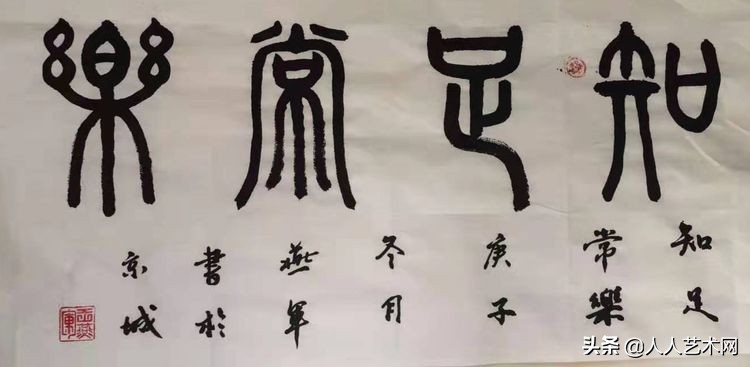 知足常樂
知足
常樂
庚子
冬月
燕军
書於
京城
头条 @人人艺术网